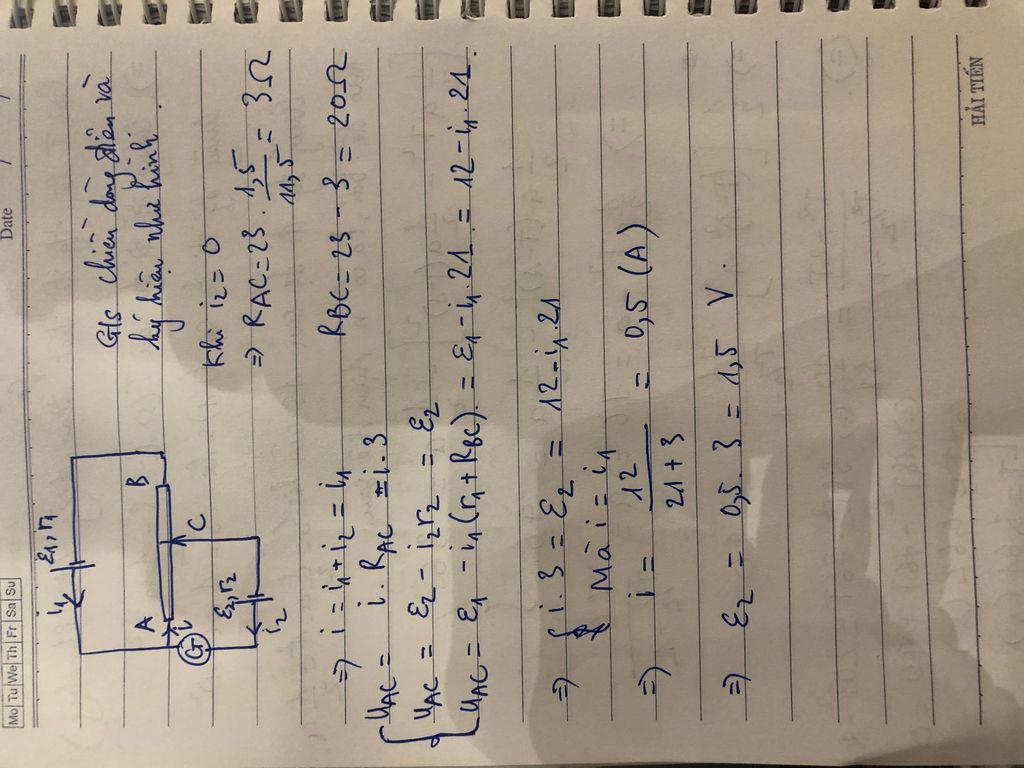 Mo Tu We Th Fr Sa Su
Date / /
ε₁, r₁
i₁
A
B
i
C
G
ε₂, r₂
i₂
Gls chiều dòng điện và
ký hiệu như hình
Khi i₂ = 0
=> RAC = 23 . 1,5/11,5 = 3Ω
RBC = 23 - 3 = 20Ω
=> i = i₁ + i₂ = i₁
UAC = i . RAC = i . 3
UAC = ε₂ - i₂r₂ = ε₂
UAC = ε₁ - i₁(r₁ + RBC) = ε₁ - i₁ . 21 = 12 - i₁ . 21 .
=> { i . 3 = ε₂ = 12 - i₁ . 21
Mà i = i₁
=> i = 12/(21 + 3) = 0,5 (A)
=> ε₂ = 0,5 . 3 = 1,5 V .
HẢI TIẾN